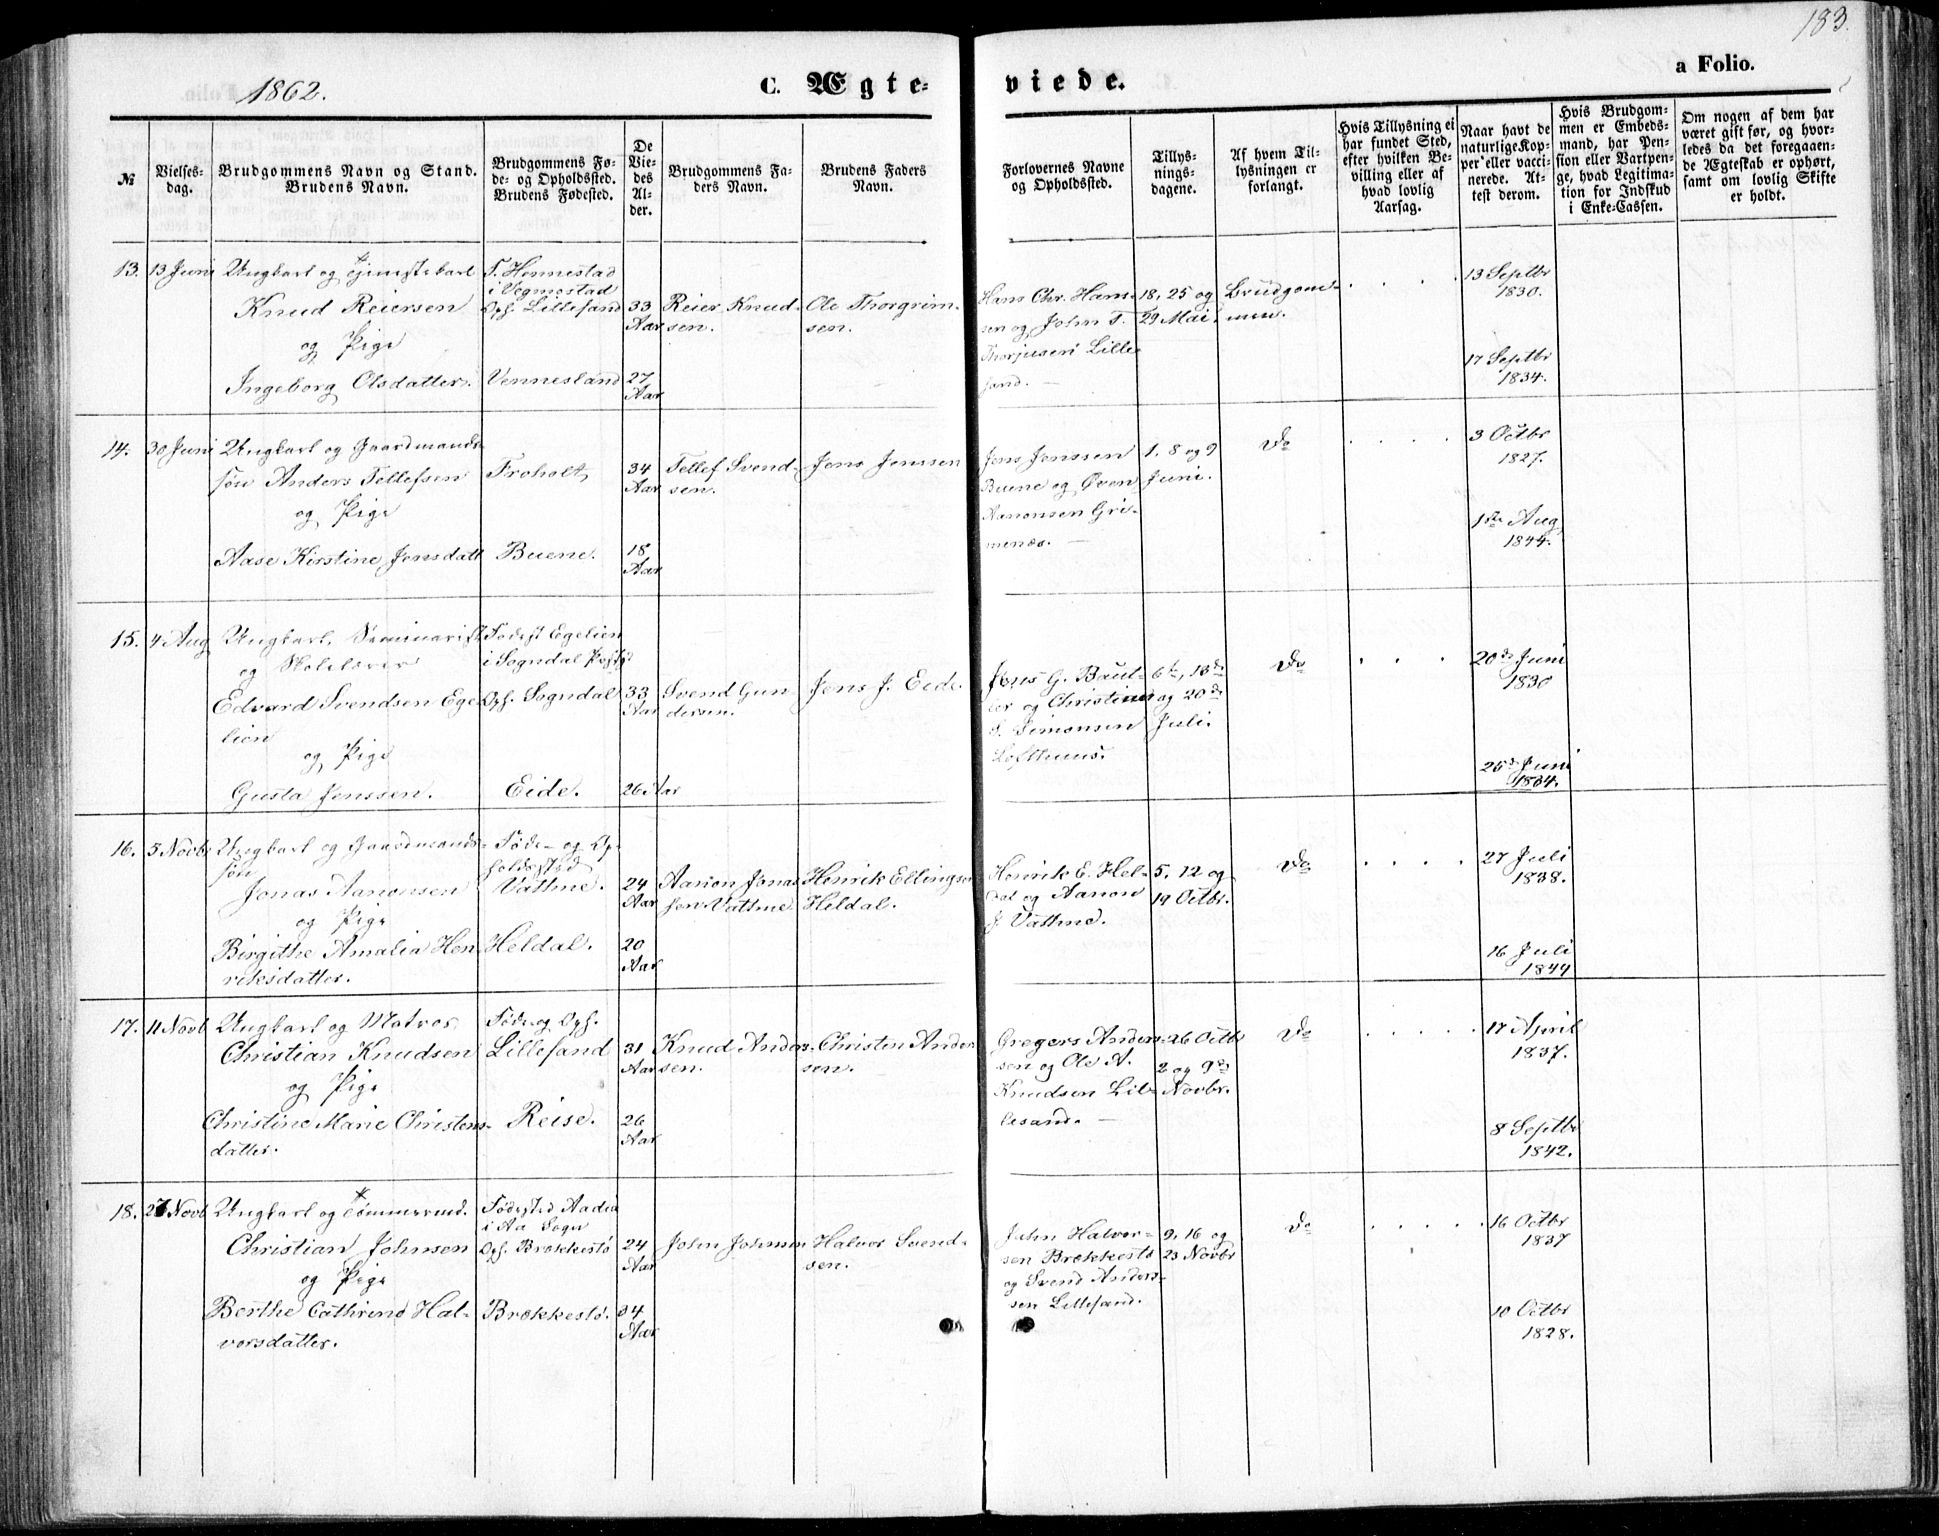 183.
1862.
C. Ægte-
viede.
a Folio.
№
Vielses-
dag.
Brudgommens Navn og Stand.
Brudens Navn.
Brudgommens Fø-
de- og Opholdssted.
Brudens Fødested.
De
Vie-
des
Al-
der.
Brudgommens Fa-
ders Navn.
Brudens Faders
Navn.
Forlovernes Navne
og Opholdssted.
Tillys-
nings-
dagene.
Af hvem Til-
lysningen er
forlangt.
Hvis Tillysning ei
har fundet Sted,
efter hvilken Be-
villing eller af
hvad lovlig
Aarsag.
Naar havt de
naturlige Kop-
per eller vacci-
nerede. At-
test derom.
Hvis Brudgom-
men er Embeds-
mand, har Pen-
sion eller Vartpen-
ge, hvad Legitima-
tion for Indskud
i Enke-Cassen.
Om nogen af dem har
været gift før, og hvor-
ledes da det foregaaen-
de Ægteskab er ophørt,
samt om lovlig Skifte
er holdt.
13. 13 Juni Ungkarl og Tjenestekarl
Knud Reiersen
og Pige
Ingeborg Olsdatter.
F. Hommestad
i Vegmostad
Oph. Lillesand
Vennesland
33
Aar
27
Aar
Reier Knud-
sen.
Ole Thorgrim-
sen.
Hans Chr. Han-
sen og John T.
Thorjusen Lille-
sand. —
18, 25 og
29 Mai.
Brudgom-
men.
. . . .
13 Septbr
1830.
17 Septbr
1834.
14. 30 Juni Ungkarl og Gaardmands-
søn Anders Tellefsen
og Pige
Aase Kirstine Jensdatt
Froholt
Buene.
34
Aar
18
Aar
Tellef Svend-
sen.
Jens Jenssen
Jens Jenssen
Buene og Øven
Aanonsen Gri-
menes. —
1, 8 og 9
Juni.
Do
. . . .
3 Octbr
1827.
1ste Aug
1844.
15. 4 Aug Ungkarl, Seminarist
og Skolelærer
Edvard Svendsen Ege-
lien
og Pige
Gusta Jenssen.
Fødest Egelien
i Sogndal Prstgd
Oph. Sogndal
Eide.
33
Aar
26 Aar
Svend Gun-
dersen.
Jens J. Eide.
Jens G. Baut-
ler og Christian
S. Simonsen
Lofthuus.
6te, 13de
og 20de
Juli.
Do
. . .
20de Juni
1830
25de Juni
1834.
16. 5 Novbr Ungkarl og Gaardmands-
søn
Jonas Aanonsen
og Pige
Birgithe Amalia Hen-
riksdatter.
Føde- og Op-
holdssted
Vathne.
Heldal.
24
Aar
20
Aar
Aanon Jonas-
sen Vathne
Henrik Ellingsen
Heldal.
Henrik E. Hel-
dal og Aanon
J. Vathne.
5, 12 og
19 Octbr.
Do
. . . .
27 Juli
1838.
16 Juli
1844
17. 11 Novb Ungkarl og Matros
Christian Knudsen
og Pige
Christine Marie Christens-
datter.
Føde og Oph.
Lillesand
Reise.
31
Aar
26
Aar
Knud Anders-
sen.
Christen Anders-
sen.
Gregers Anders-
sen og Ole A.
Knudsen Lil-
lesand. —
26 Octbr
2 og 9de
Novbr.
Do
. . . . .
17 April
1837.
8 Septbr
1842.
18. 27 Novb Ungkarl og Tømmermd.
Christian Johnsen
og Pige
Berthe Cathrine Hal-
vorsdatter.
Fødested
i Aa Sogn
Oph. Brækkestø
Brækkestø.
24
Aar
34
Aar
John Johnsen
Halvor Svend-
sen.
John Halvor-
sen Brækkestø
og Svend Anders-
sen Lillesand.
9, 16 og
23 Novbr
Do
. . . . .
16 Octbr
1837
10 Octbr
1828.